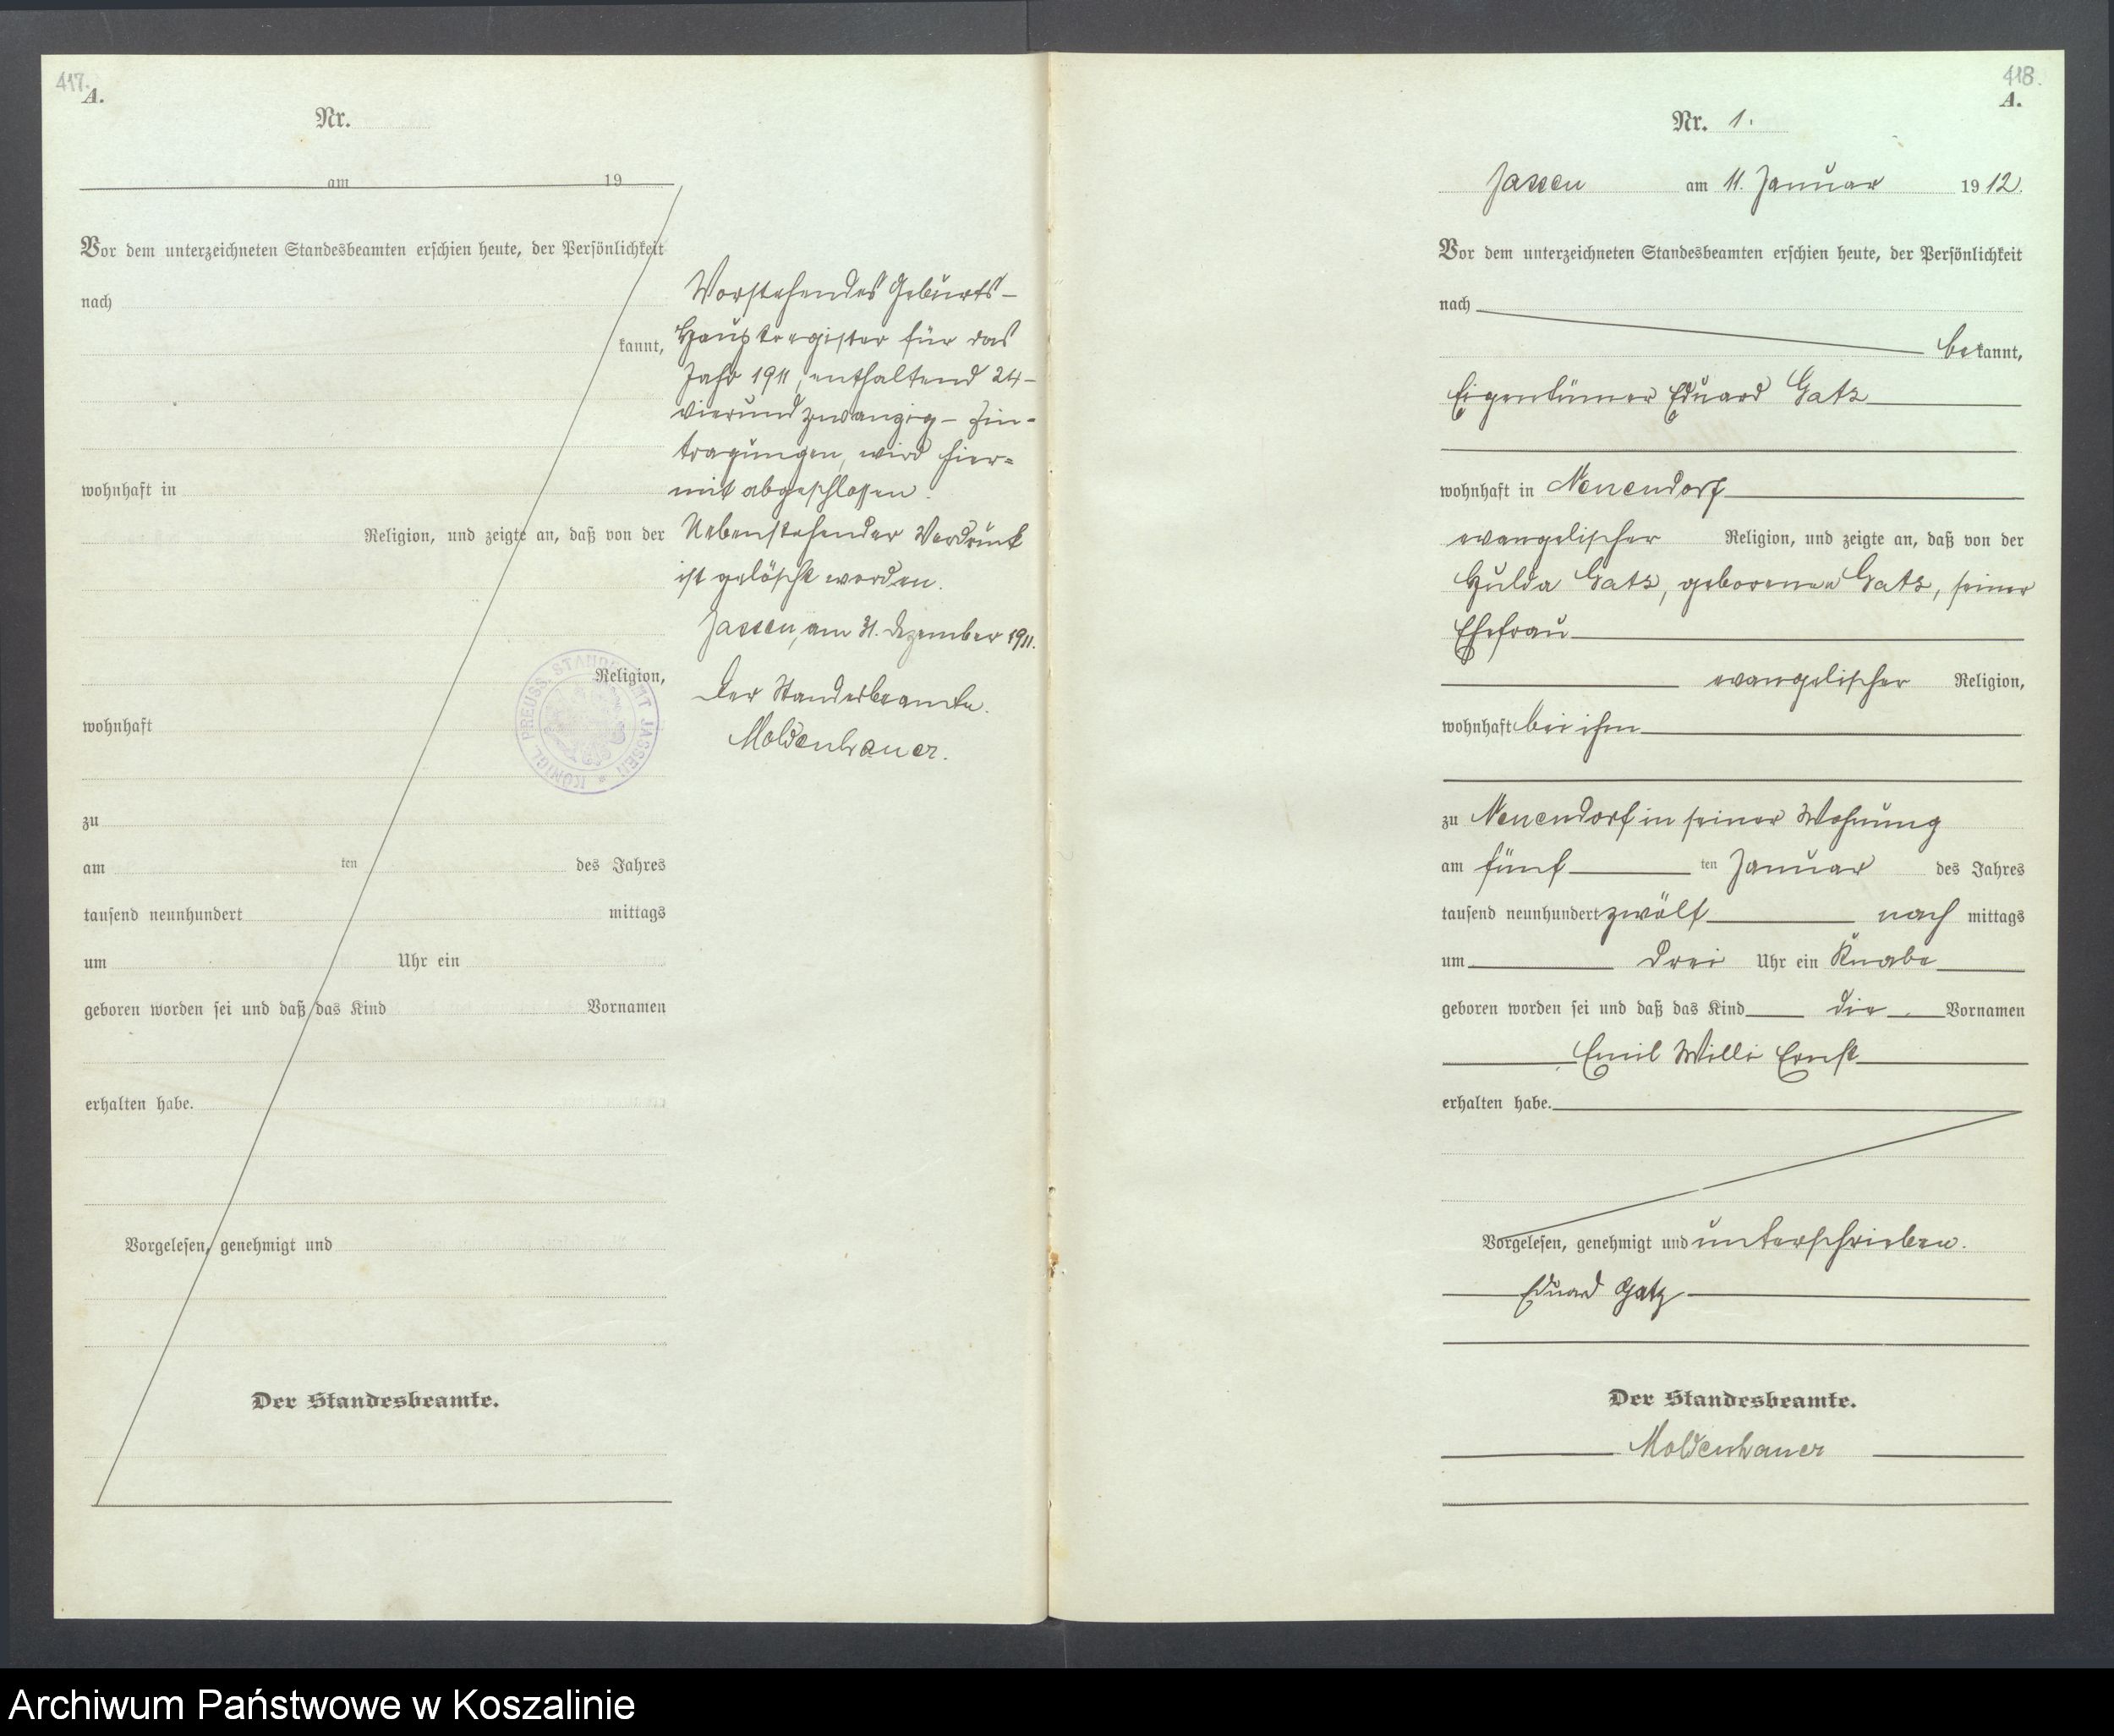 417.
A.
Nr.
am 19
Vor dem unterzeichneten Standesbeamten erschien heute, der Persönlichkeit
nach
kannt,
wohnhaft in
Religion, und zeigte an, daß von der
Religion,
wohnhaft
zu
am ten des Jahres
tausend neunhundert mittags
um Uhr ein
geboren worden sei und daß das Kind Vornamen
erhalten habe.
Vorgelesen, genehmigt und
Der Standesbeamte.
Vorstehendes Geburts-
Hauptregister für das
Jahr 1911, enthaltend 24-
vierundzwanzig- Ein-
tragungen, wird hier=
mit abgeschlossen.
Nebenstehender Vordruck
ist gelöscht worden.
Jassen, am 31. Dezember 1911.
Der Standesbeamte.
Moldenhauer.
KÖNIGL. PREUSS. STANDESAMT JASSEN *
418.
A.
Nr. 1.
Jassen am 11. Januar 1912.
Vor dem unterzeichneten Standesbeamten erschien heute, der Persönlichkeit
nach
bekannt,
Eigentümer Eduard Gatz
wohnhaft in Neuendorf
evangelischer Religion, und zeigte an, daß von der
Hulda Gatz, geborenen Gatz, seiner
Ehefrau
evangelischer Religion,
wohnhaft bei ihm
zu Neuendorf in seiner Wohnung
am fünf ten Januar des Jahres
tausend neunhundert zwölf nach mittags
um drei Uhr ein Knabe
geboren worden sei und daß das Kind die Vornamen
Emil Willi Ernst
erhalten habe.
Vorgelesen, genehmigt und unterschrieben.
Eduard Gatz
Der Standesbeamte.
Moldenhauer
Archiwum Państwowe w Koszalinie